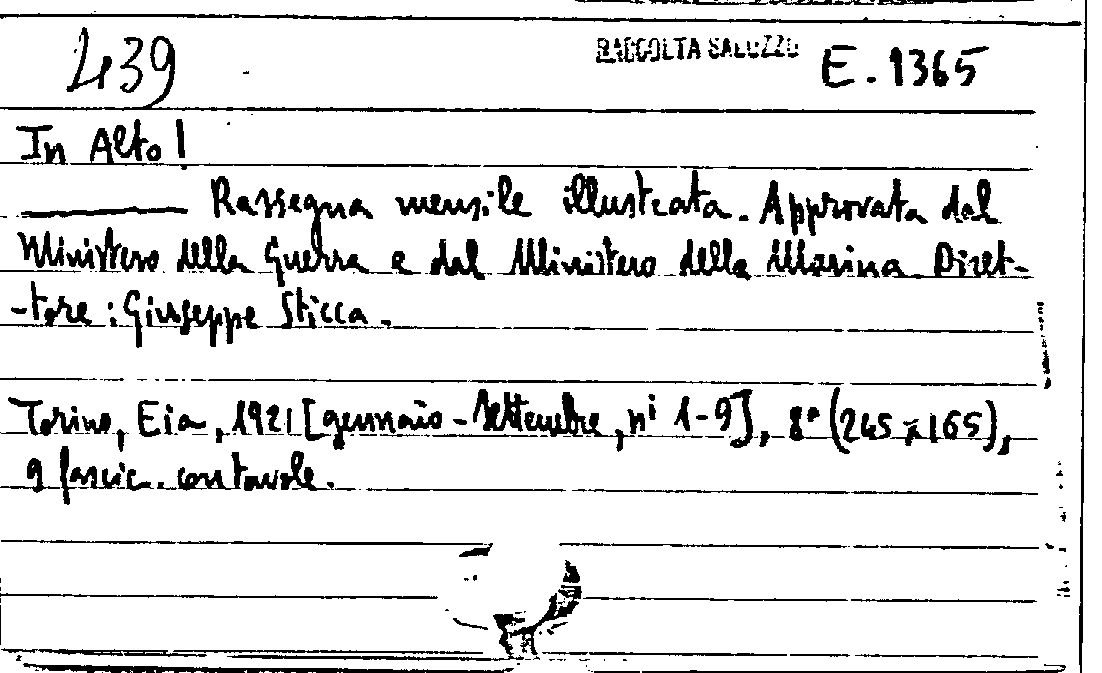 439 RACCOLTA SALUZZO E. 1365
In Alto!
Rassegna mensile illustrata. Approvata dal
Ministero della Guerra e dal Ministero della Marina Diret-
-tore: Giuseppe Sticca.
Torino, Eia, 1921 [gennaio-Settembre, ni 1-9], 8° (245x165),
9 fascic. con tavole.